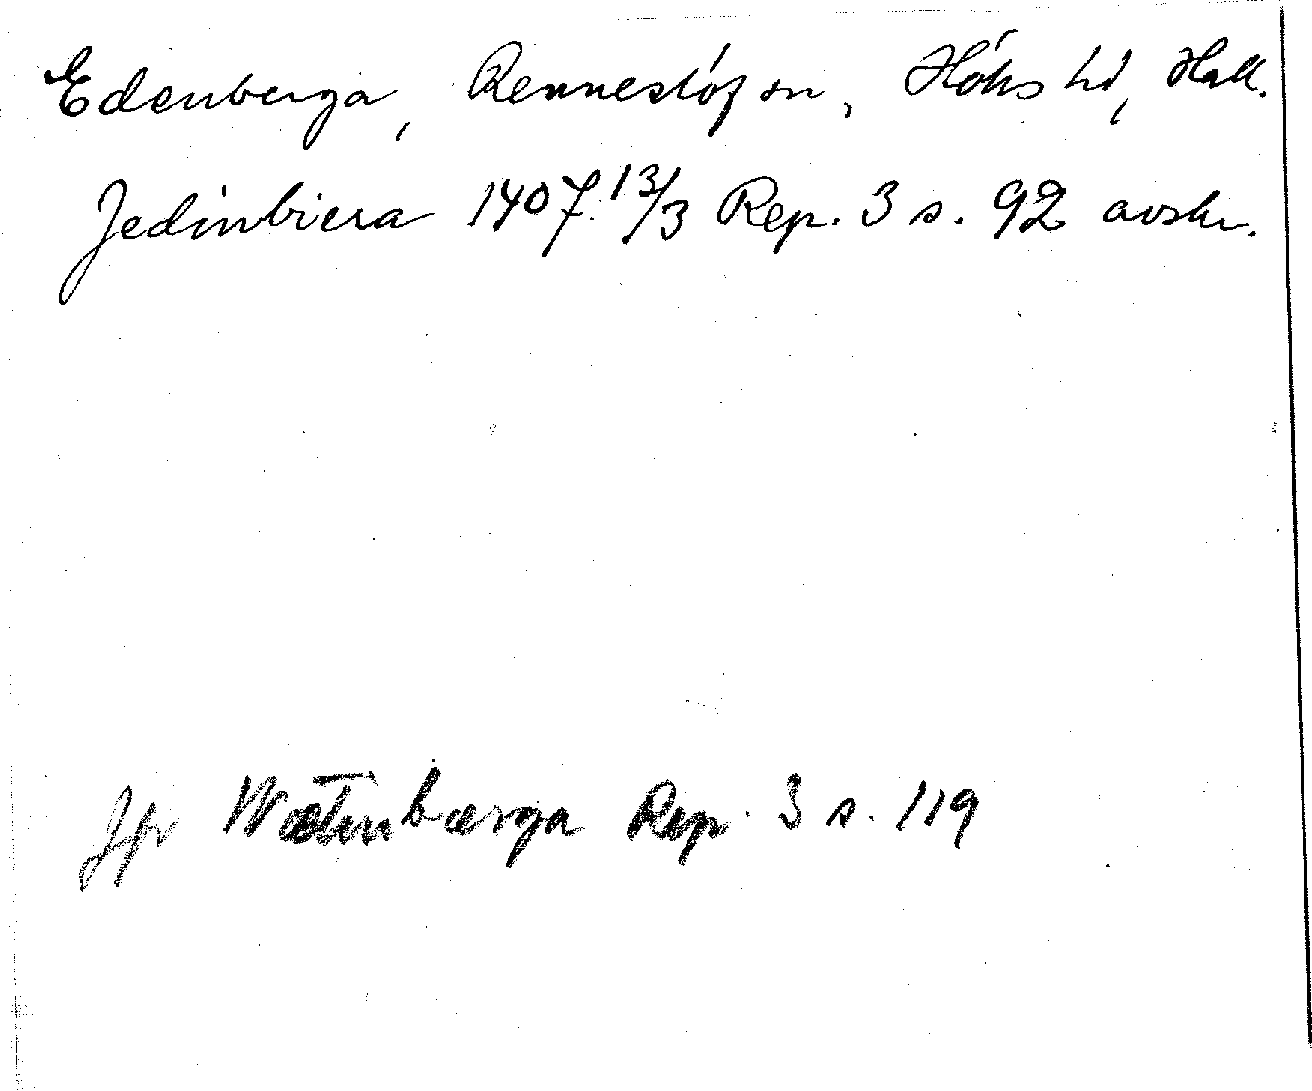 Edenberga, Renneslöf sn, Höks hd, Hall.
Jedinbiera 1407 13/3 Rep. 3 s. 92 avskr.
Jfr Wætinbærga Rep. 3 s. 119